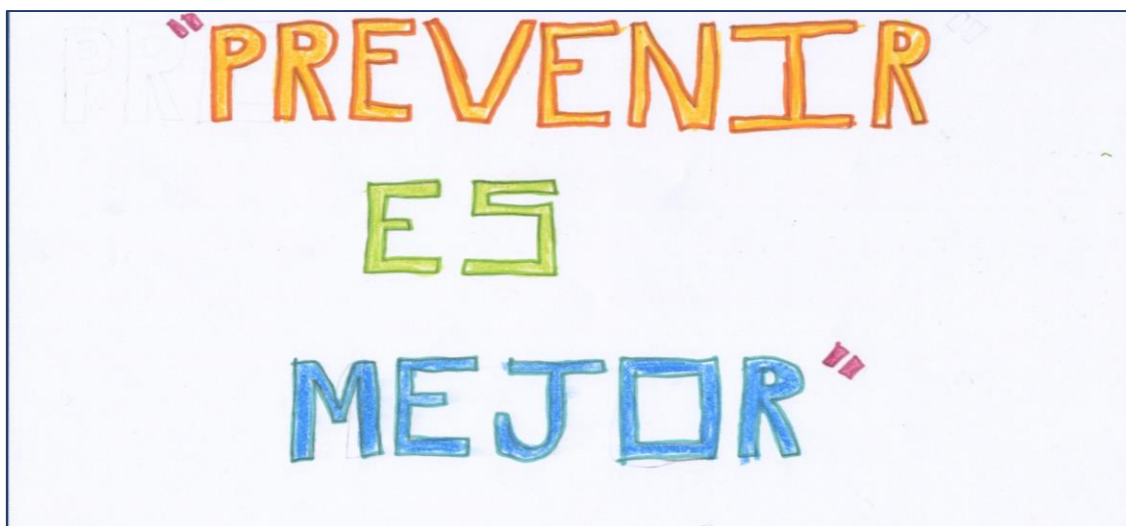 "PREVENIR
ES
MEJOR"